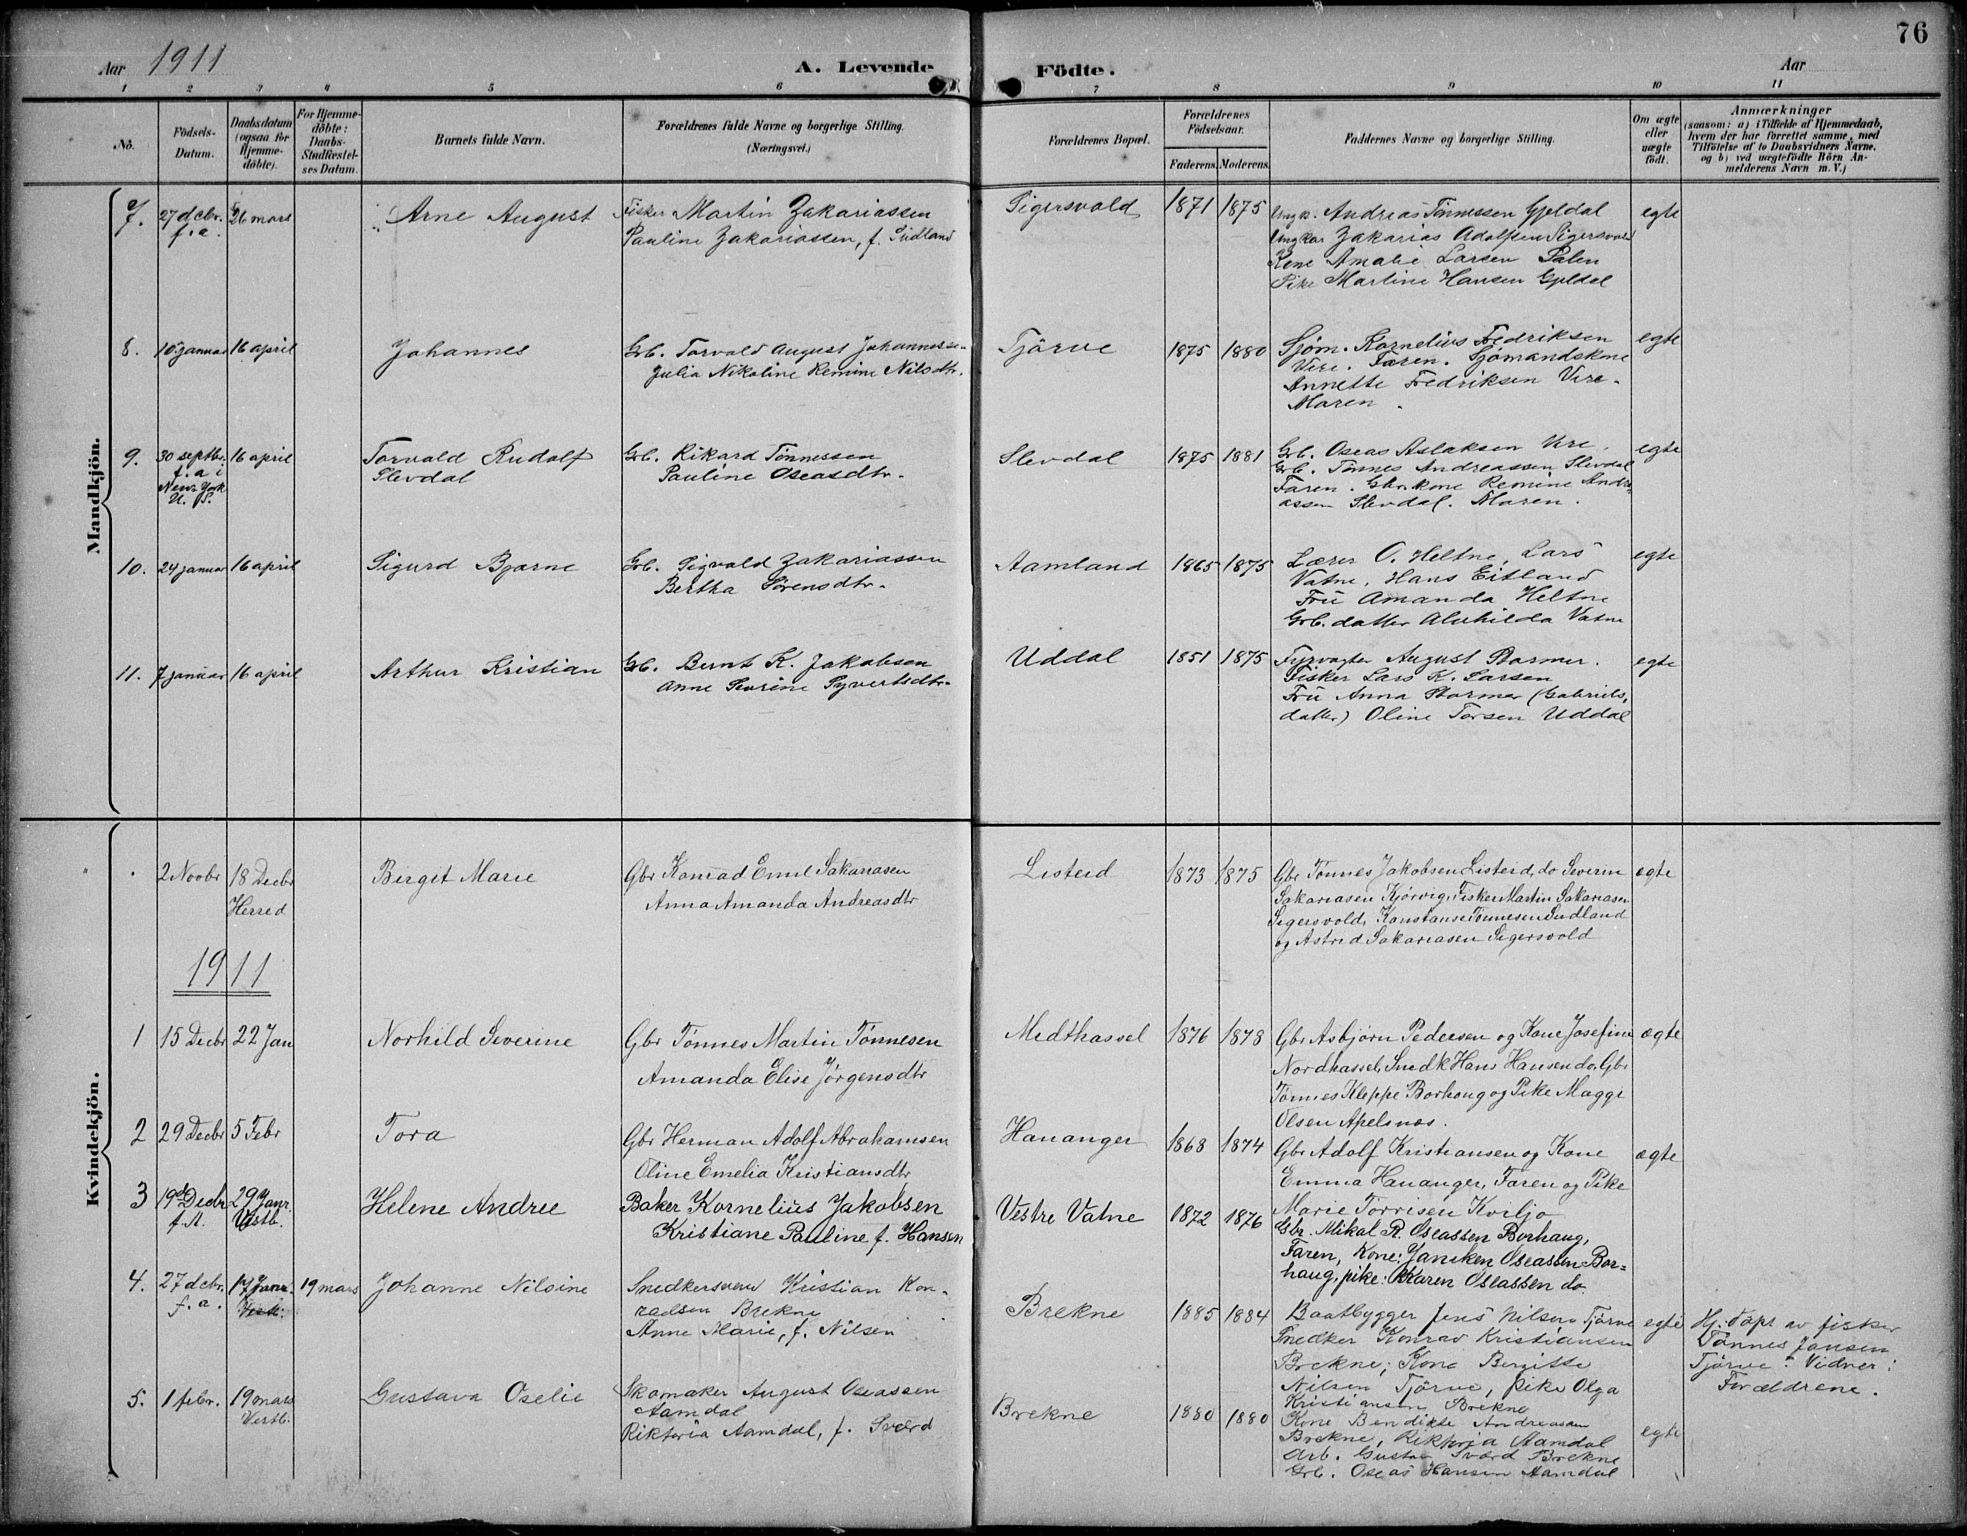 76
Aar 1911
A. Levende
Födte.
Aar
1 2 3 4 5 6 7 8 9 10 11
No.
Födsels-
Datum.
Daabsdatum
(ogsaa for
Hjemme-
döbte).
For Hjemme-
döbte:
Daabs-
Stadfæstel-
ses Datum.
Barnets fulde Navn.
Forældrenes fulde Navne og borgerlige Stilling.
(Næringsvei.)
Forældrenes Bopæl.
Forældrenes
Födselsaar.
Faderens.
Moderens.
Faddernes Navne og borgerlige Stilling.
Om ægte
eller
uægte
født.
Anmærkninger
(saasom: a) i Tilfælde af Hjemmedaab,
hvem der har forrettet samme, med
Tilföielse af to Daabsvidners Navne,
og b) ved uægtefödte Börn An-
melderens Navn m. V.)
Mandkjön.
7. 27 dcbr. 26 mars Arne August Fisker Martin Zakariassen Sigersvold 1871 1875 Ungk. Andreas Tönnessen Gjeldal egte
f. a. Pauline Zakariassen, f. Sudland Ungkar Zakarias Adolfsen Sigersvold
Kone Amalie Larsen Salen
Pike Martine Hansen Gjeldal
8. 16 april Johannes Grb. Torvald August Johannesse- Tjörve 1875 1880 Sjöm. Kornelius Fredriksen egte
Julia Nikoline Remine Nilsdtr. Vere. Faren. Sjömandskone
Annette Fredriksen Vere.
Maren.
9. 30 septbr. 16 april Torvald Rudolf Grb. Rikard Tönnessen Slevdal 1875 1881 Grb. Oseas Aslaksen Vere. egte
f. a. i Slevdal Pauline Oseasdtr. Grb. Tönnes Andreassen Slevdal
New York Faren. Gbr.kone Remine Andre-
U. S. assen Slevdal. Maren.
10. 24 januar 16 april Sigurd Bjarne Grb. Sigvald Zakariassen Aamland 1865 1875 Lærer O. Heltne, Lars egte
Bertha Sörensdtr. Vatne, Hans Eitland
Frü Amanda Heltne
Grb. datter Alvhilda Vatne
11. 7 januar 16 april Arthur Kristian Grb. Bernt K. Jakobsen Uddal 1851 1875 Fyrvagter August Stormer. egte
Anne Severine Syvertsdtr. Fisker Lars K. Larsen
Frü Anna Stormer (Gabriels,
datter) Oline Torsen Uddal
Kvindekjön.
2 Novbr 18 Decbr Birgit Marie Gbr Konrad Emil Sakariasen Listeid 1873 1875 Gbr Tønnes Jakobsen Listeid, do Severin ægte
Herred Anna Amanda Andreasdtr Sakariasen Kjørvig, Fisker Martin Sakariasen
Sigersvold, Konstanse Tønnesen Sudland
og Astrid Sakariasen Sigersvold
1911
1 15 Decbr 22 Jan Norhild Severine Gbr Tønnes Martin Tønnesen Midthassel 1876 1878 Gbr Asbjørn Pedersen og Kone Josefine ægte
Amanda Elise Jørgensdtr Nordhassel, Smdk Hans Hansen do. Gbr
Tønnes Kleppe Borhoug og Pike Maggi
Olsen Apelsnæs.
2 29 Decbr 5 Febr Tora Gbr Herman Adolf Abrahamsen Hananger 1868 1874 Gbr Adolf Kristiansen og Kone ægte
Oline Emelia Kristiansdtr Emma Hananger, Faren og Pike
Marie Torrisen Kviljo
3 19de Decbr 29 Janr. Helene Andree Baker Kornelius Jakobsen Vestre Vatne 1872 1876 Gbr. Mikal R. Oseassen Borhaug,
f. A. Vestb. Kristiane Pauline f. Hansen Faren, Kone: Janiken Oseassen Bor=
haug, pike: Karen Oseassen do
4. 27 dcbr. 17 Janr. 19 mars Johanne Nilsine Snedkersvend Kristian Kon- Brekne 1885 1884 Baatbygger Jens Nilsen Tjörve egte Hj. döpt av fisker
f. a. radsen Brekne Snedker Konrad Kristiansen Tönnes Jansen
Anne Marie, f. Nilsen Brekne, Kone Bergitte Tjörve. Vidner:
Nilsen Tjörve, pike Olga Forældrene.
Kristiansen Brekne
5. 1 febr. 19 mars Gustava Oselie Skomaker August Oseassen Brekne 1880 1880 Kone Bendikte Andreasen egte
Vestb. Aamdal Brekne, Riktoria Aamdal
Riktoria Aamdal, f. Sværd Arb. Gustav Sværd Brekne
Grb. Oseas Hansen Aamdal